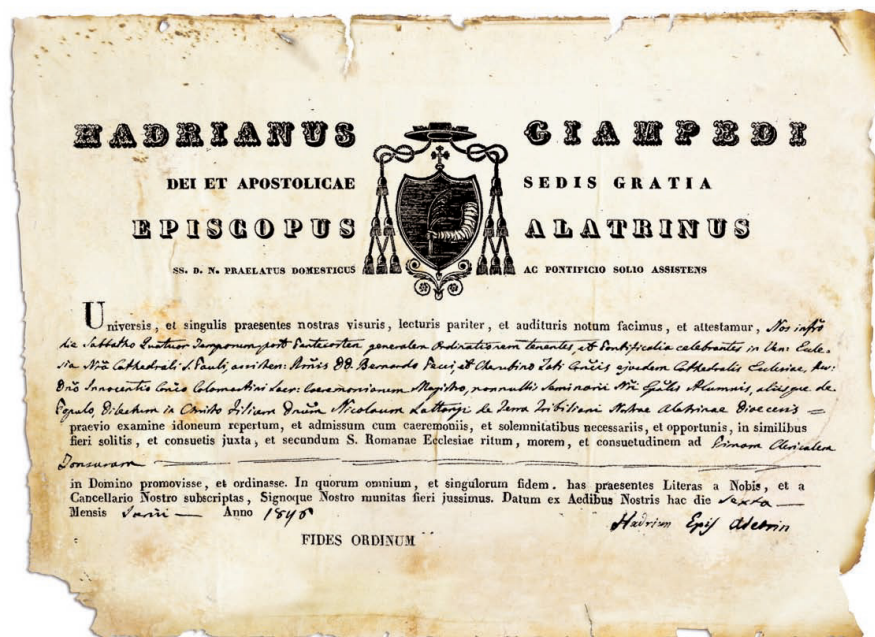 HADRIANUS GIAMPEDI
DEI ET APOSTOLICAE SEDIS GRATIA
EPISCOPUS ALATRINUS
SS. D. N. PRAELATUS DOMESTICUS AC PONTIFICIO SOLIO ASSISTENS
Universis, et singulis praesentes nostras visuris, lecturis pariter, et audituris notum facimus, et attestamur, Nos infrō
die Sabbatho Quatuor Temporum post Pentecosten generalem Ordinationem tenentes, et Pontificalia celebrantes in Ven: Eccle-
sia Nrā Cathedrali S. Pauli, assisten: DD. Bernardo et Cherubino ejusdem Cathedralis Ecclesiae,
Dnō Innocentio Colomartini Sacr: Caeremoniarum Magistro, nonnulli Seminarii Alumnis, aliisque de
Populo, Dilectum in Christo Filium Dnum Nicolaum Lattanzi de Terra Tribiliani Nostrae Alatrinae Dioecesis =
praevio examine idoneum repertum, et admissum cum caeremoniis, et solemnitatibus necessariis, et opportunis, in similibus
fieri solitis, et consuetis juxta, et secundum S. Romanae Ecclesiae ritum, morem, et consuetudinem ad Primam Clericalem
Tonsuram
in Domino promovisse, et ordinasse. In quorum omnium, et singulorum fidem. has praesentes Literas a Nobis, et a
Cancellario Nostro subscriptas, Signoque Nostro munitas fieri jussimus. Datum ex Aedibus Nostris hac die Sexta —
Mensis Junii — Anno
Hadrian Epis Alatrin
FIDES ORDINUM